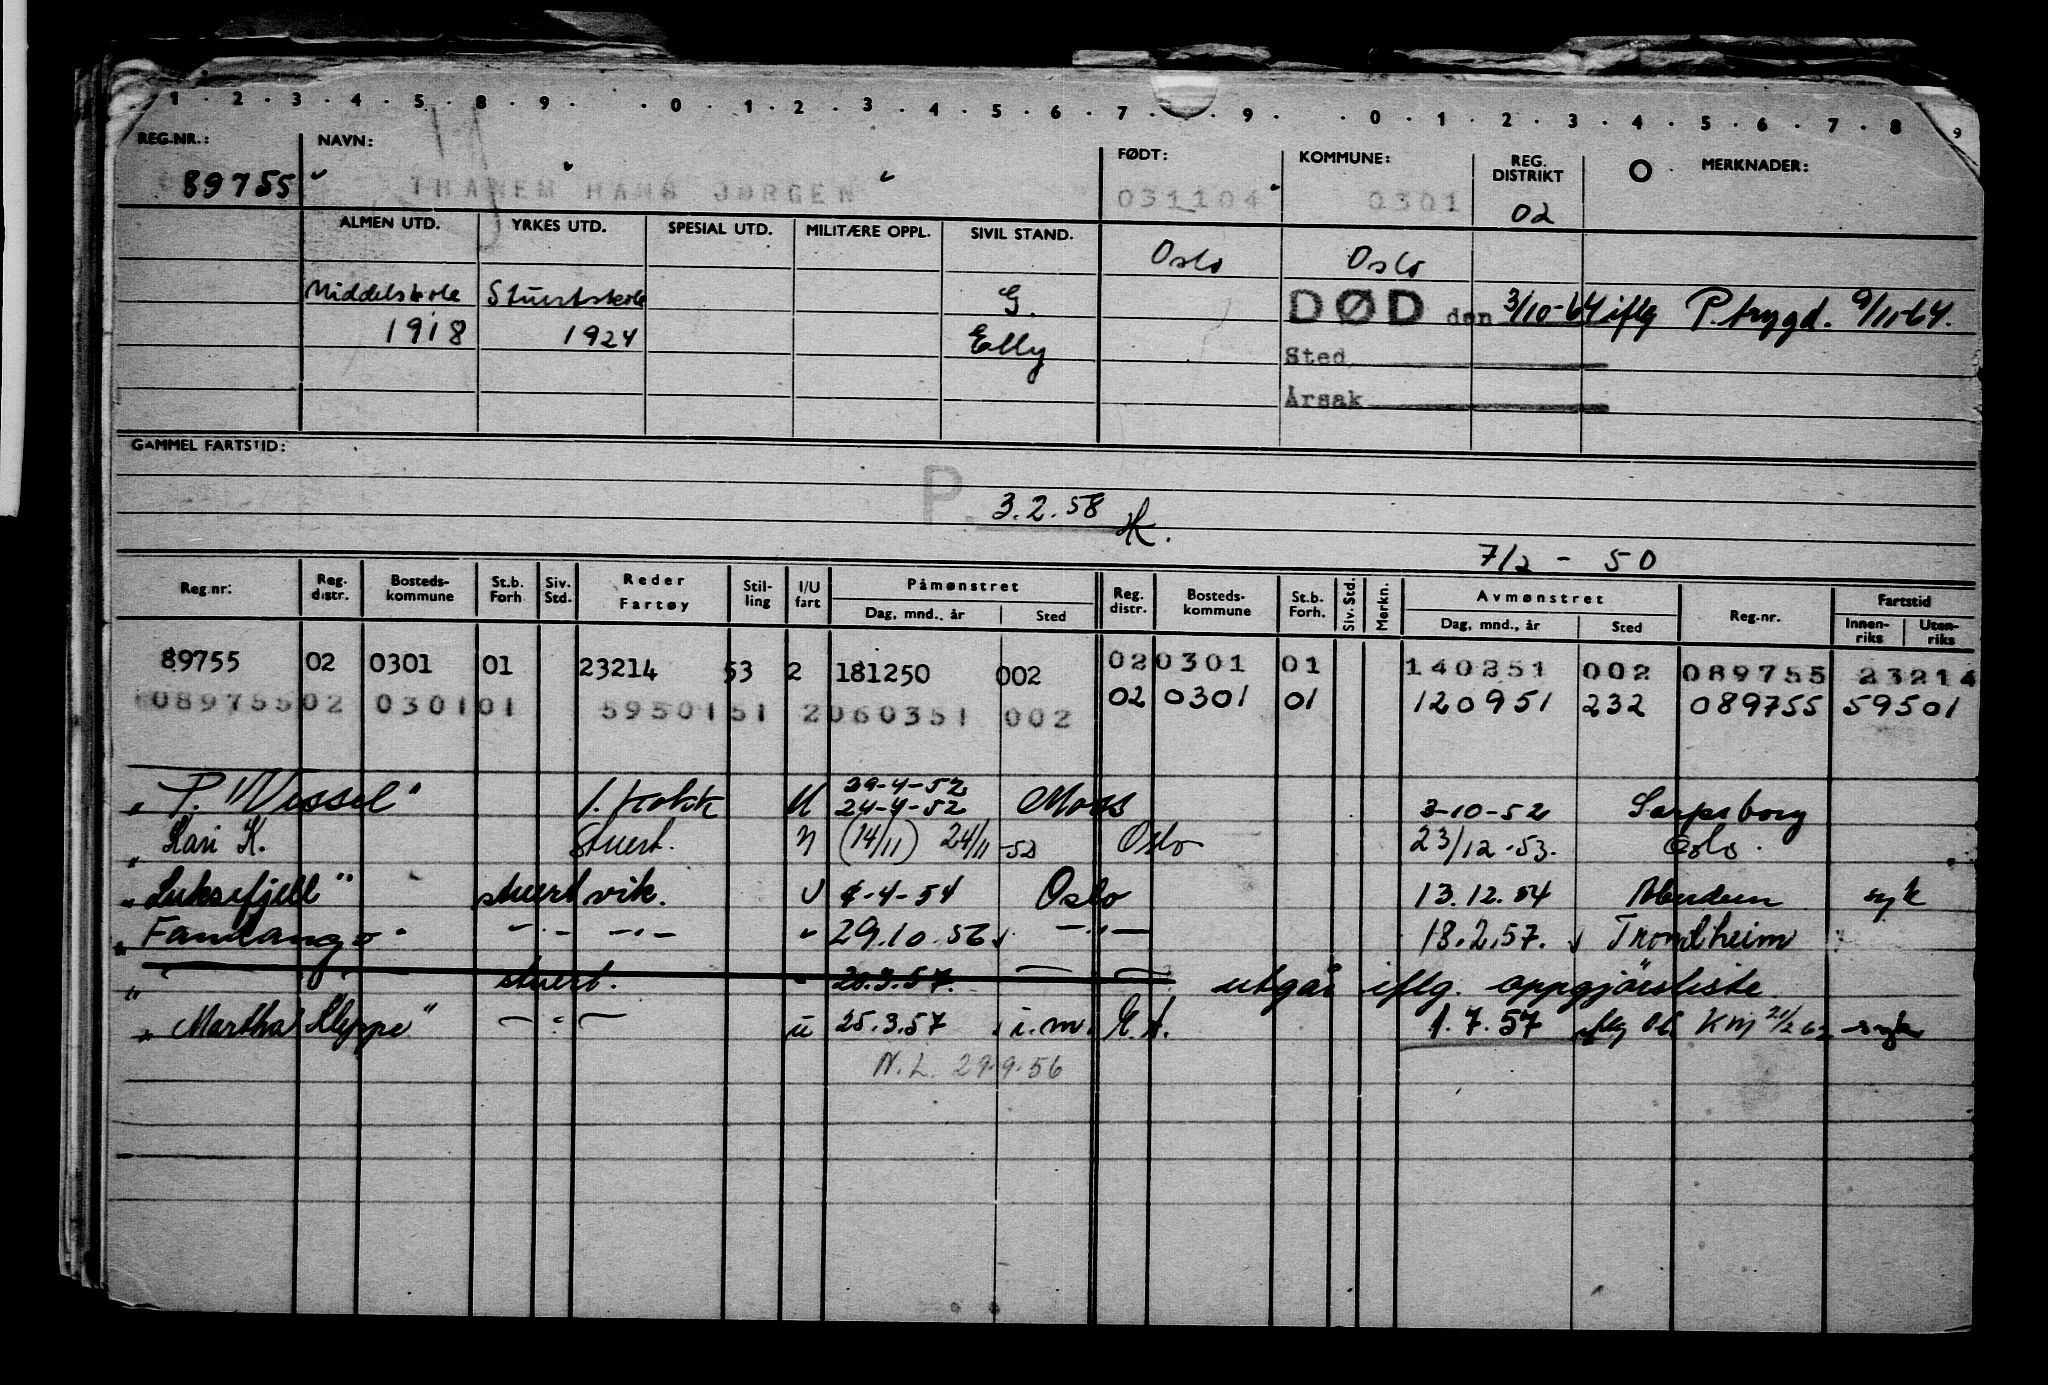 1 . 2 . 3 . 4 . 5 . 8 . 9 . . 0 . 1 . 2 . 3 . 4 . 5 . 6 . 7 . . 9 . . 0 . 1 . 2 . 3 . 4 . 5 . 6 . 7 . 8 9
REG.NR.: NAVN: FØDT: KOMMUNE: REG. DISTRIKT MERKNADER:
89755 THANEM HANS JØRGEN 031104 0301 02
ALMEN UTD. YRKES UTD. SPESIAL UTD. MILITÆRE OPPL. SIVIL STAND. Oslo Oslo
Middelskole Stuertskole G. DØD den 3/10-64 iflg P.trygd. 9/11-64.
1918 1924 Elly Sted
Årsak
GAMMEL FARTSTID:
P. 3.2.58
7/2 - 50
Reg.nr: Reg. distr. Bosteds-kommune St.b. Forh Siv. Std. Reder Fartøy Stil-ling I/U fart Påmønstret Dag, mnd., år Sted Reg. distr. Bosteds-kommune St.b. Forh. Siv. Std. Merkn. Avmønstret Dag, mnd., år Sted Reg.nr. Fartstid Innen-riks Uten-riks
89755 02 0301 01 23214 53 2 181250 002 02 0301 01 140251 002 089755 23214
089755 02 0301 01 59501 51 2 060351 002 02 0301 01 120951 232 089755 59501
29-4-52
"P. Wessel" 1. kokk U 24-4-52 Moss 3-10-52 Sarpsborg
" Kari K. Stuert. N (14/11) 24/11-52 Oslo 23/12-53. Oslo.
"Luksefjell" stuert vik. U 4-4-54 Oslo 13.12.54 Aberdeen syk
"Fandango" -"- -"- " 29.10.56 -"- 18.2.57. Trondheim
" stuert. " 20.3.57. utgår iflg. oppgjørsliste
"Martha Kleppe" -:- u 25.3.57 i.m. E.A. 1.7.57 iflg Ob. KM 21/2 62 syk
N.L. 29.9.56